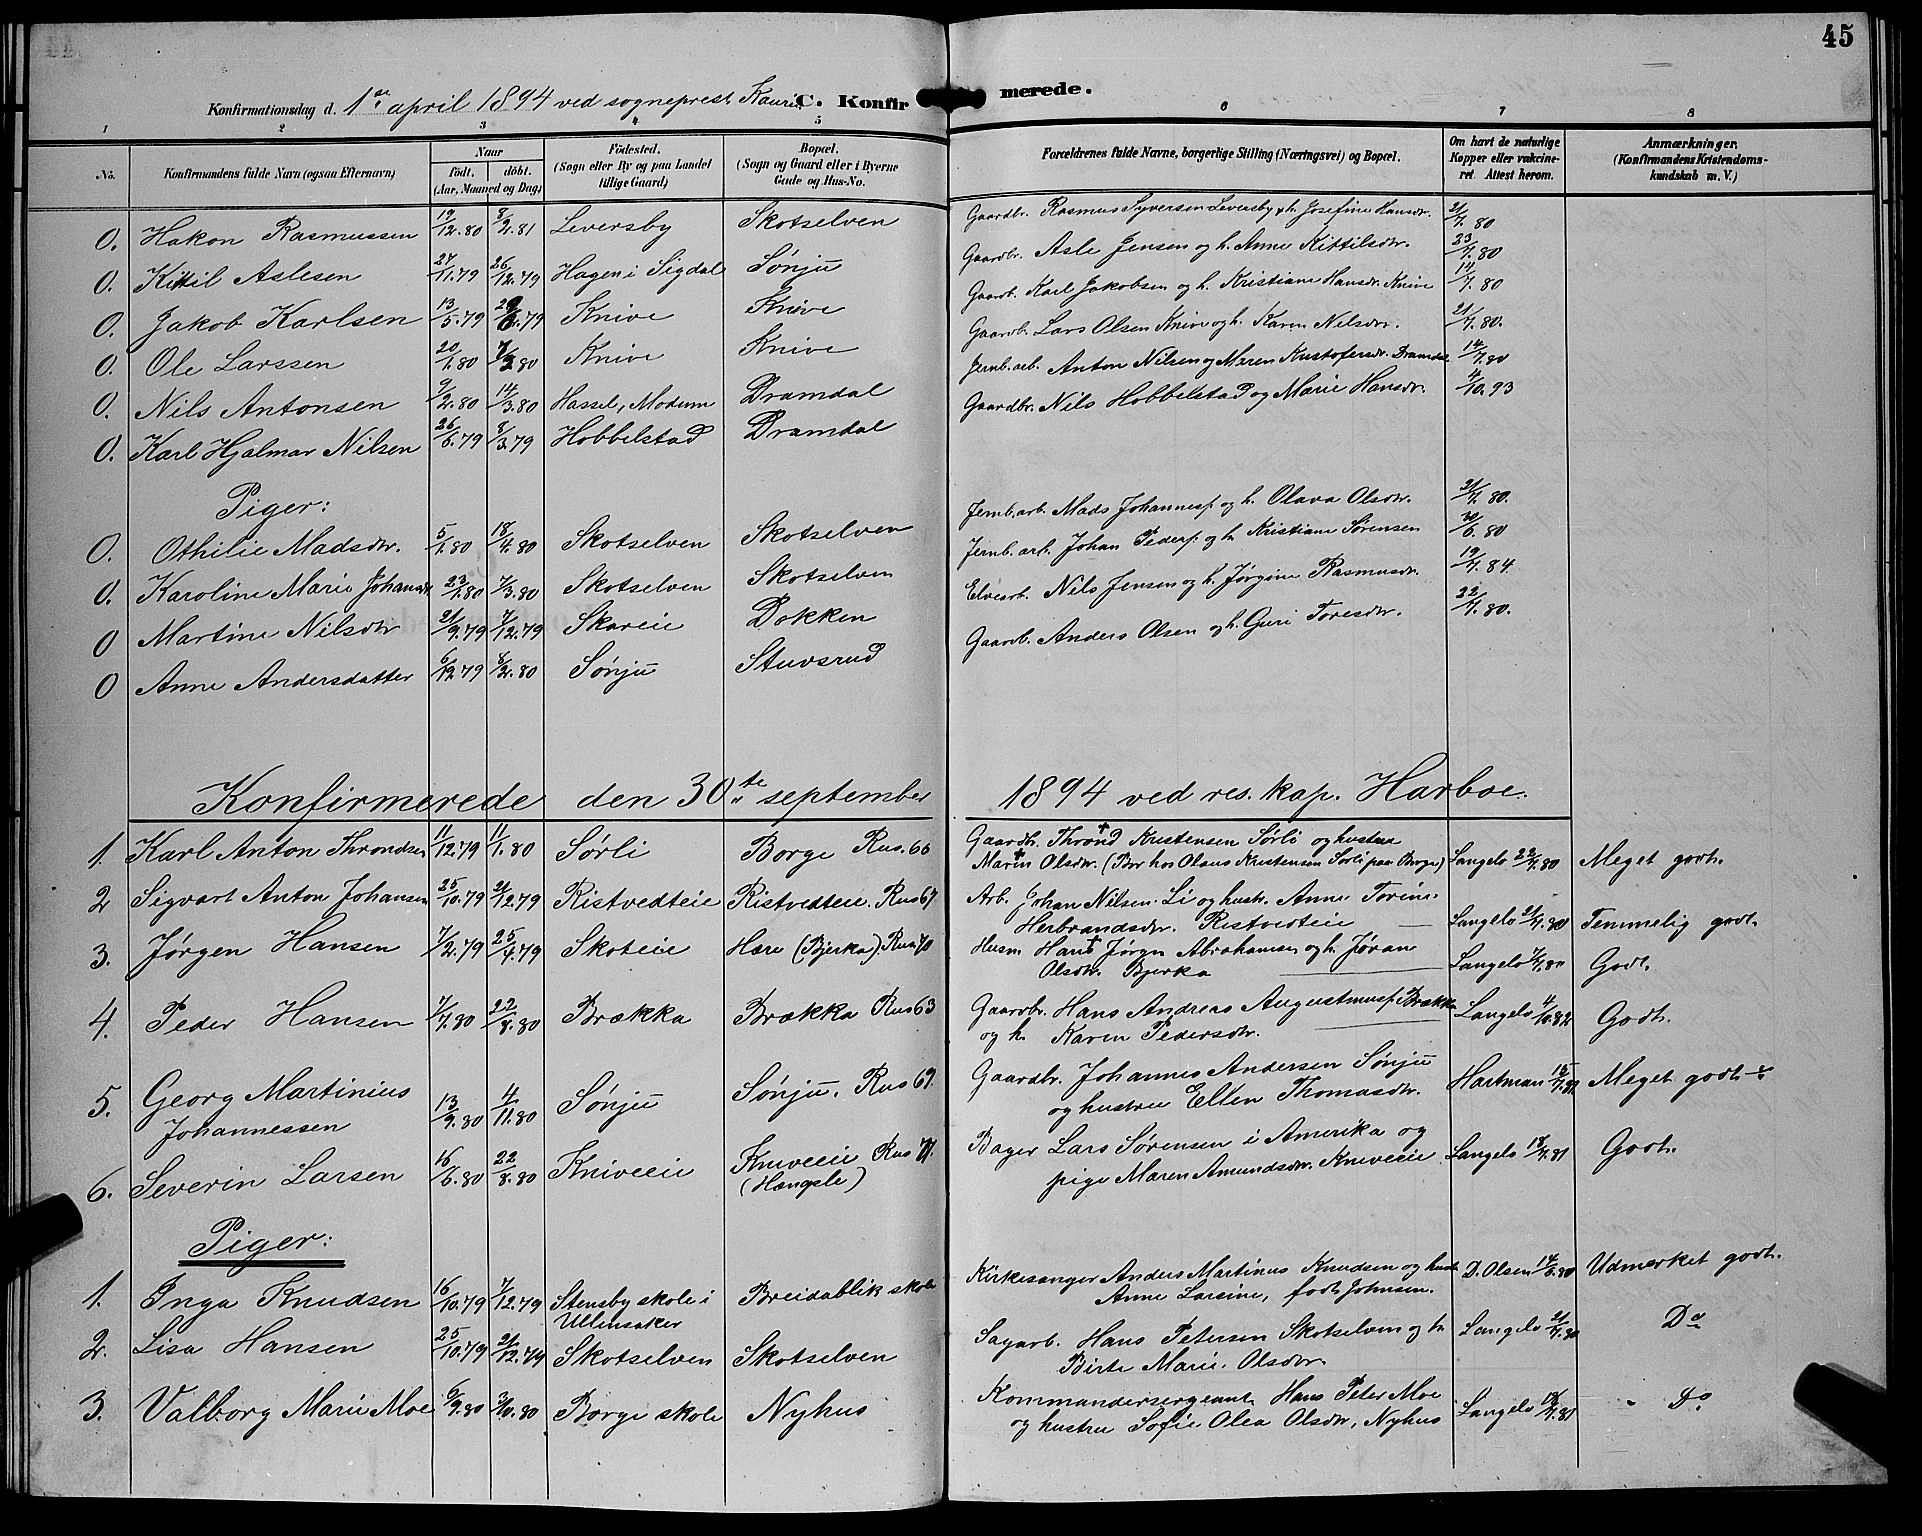 45
Konfirmationsdag d. 1ste april 1894 ved sogneprest Kaurin C. Konfir merede.
1 2 3 4 5 6 7 8
No. Konfirmandens fulde Navn (ogsaa Efternavn) Naar født. døbt. (Aar, Maaned og Dag) Födested. (Sogn eller By og paa Landet tillige Gaard) Bopæl. (Sogn og Gaard eller i Byerne Gade og Hus-No. Forældrenes fulde Navne, borgerlige Stilling (Næringsvei) og Bopæl. Om havt de naturlige Kopper eller vakcineret. Attest herom. Anmærkninger. (Konfirmandens Kristendomskundskab m. V.)
0. Hakon Rasmussen 19/12.80 8/2.81 Leversby Skotselven Gaardbr. Rasmus Syversen Leversby h. Josefine Hansdr. 21/7.80
0. Kittil Aslesen 27/11.79 26/12.79 Hagen i Sigdal Sønju Gaardbr. Asle Jensen og h. Anne Kittilsdr. 23/7.80
0. Jakob Karlsen 13/5.79 Knive Knive Gaardb. Karl Jakobsen og h. Kristiane Hansdr. Knive 14/7.80
0. Ole Larssen 20/1.80 Knive Knive Gaardb. Lars Olsen Knive og h. Karen Nilsdr. 21/7.80.
0. Nils Antonsen 9/2.80 14/3.80 Hassel, Modum Dramdal Jernb. arb. Anton Nilsen og Maren Kristofersdr. Dramdal 14/7.80
0. Karl Hjalmar Nilsen 26/6.79 8/3.79 Hobbelstad Dramdal Gaardbr. Nils Hobbelstad og Marie Hansdr. 4/10.93
Piger:
0. Othilie Madsdtr. 5/1.80 18/4.80 Skotselven Skotselven Jernb. arb. Mads Johannesf. og h. Olava Olsdtr. 21/7.80.
0. Karoline Marie Johansdr. 23/1.80 7/3.80 Skotselven Skotselven Jernb. arb. Johan Pedersf. og h. Kristiane Sørensen 30/6.80
0 Martine Nilsdtr 21/9.79 7/12.79 Skareie Dokken Elvearb. Nils Jensen og h. Jørgine Rasmusdr. 19/7.84
0 Anne Andersdatter 6/12.79 8/2.80 Sønju Stuvsrud Gaardb. Anders Olsen og h. Guri Toresdtr. 22/7.80.
Konfirmerede den 30te september 1894 ved res. kap. Harboe.
1. Karl Anton Throndsen 11/12.79 11/1.80 Sørli Borge Rus. 66 Gaardbr. Thrond Kristensen Sørli og hustru
Maren Olsdtr. (Bor hos Olaus Kristensen Sørli paa Borge) Langelo 22/7.80 Meget godt.
2 Sigvart Anton Johansen 25/10.79 21/12.79 Ristvedteie Ristvedteie. Rus 67 Arb. Johan Nilsen Li og hustr. Anne Torine
Herbrandsdr. Ristvedteie Langelo 21/7.80 Temmelig godt.
3. Jørgen Hansen 7/2.79 25/4.79 Skoteie Hære (Bjerka). Rus 70 Husm. Hans Jørgen Abrahamsen og h. Jøran
Olsdtr. Bjerka Langelo 7/7.80 Godt.
4. Peder Hansen 7/7.80 22/8.80 Brækka Brækka Rus 63 Gaardbr. Hans Andreas Augustinusf. Brækka
og h. Karen Pedersdtr. Langelo 4/10.82 Godt.
5. Georg Martinius
Johannessen 13/9.80 4/11.80 Sønju Sønju. Rus 69. Gaardbr. Johannes Andersen Sønju
og hustru Ellen Thomasdtr. Hartman 15/7.81 Meget godt ÷
6. Severin Larsen 16/6.80 22/8.80 Kniveeie Kniveeie Rus 71.
(Hængsle) Bager Lars Sørensen i Amerika og
pige Maren Amundsdtr. Kniveeie Langelo 18/7.81 Godt.
Piger:
1. Inga Knudsen 16/10.79 7/12.79 Stensby skole i
Ullensaker Breidablik skole Kirkesanger Anders Martinus Knudsen og hustr
Anne Larsine, født Johnsen. D. Olsen 14/6.80 Udmerket godt.
2. Lisa Hansen 25/10.79 21/12.79 Skotselven Skotselven Sagarb. Hans Petersen Skotselven og h.
Birte Marie Olsdtr. Langelo 21/7.80 Do
3. Valborg Marie Moe 6/9.80 3/10.80 Borge skole Nyhus Kommandersergeant Hans Peter Moe
og hustru Sofie Olea Olsdtr, Nyhus Langelo 18/7.81 " Do